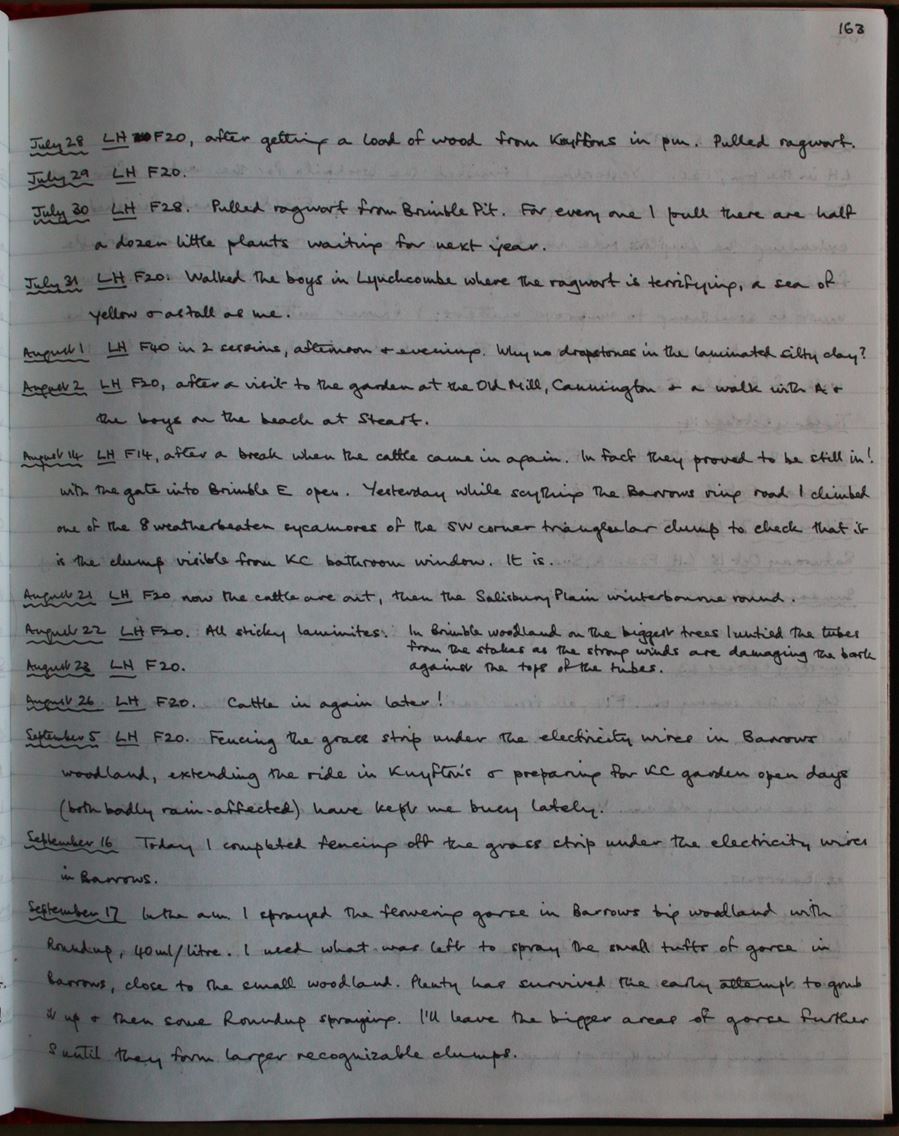 163
July 28 LH F20, after getting a load of wood from Knyftons in pm. Pulled ragwort.
July 29 LH F20.
July 30 LH F28. Pulled ragwort from Brimble Pit. For every one I pull there are half
a dozen little plants waiting for next year.
July 31 LH F20. Walked the boys in Lynchcombe where the ragwort is terrifying, a sea of
yellow & as tall as me.
August 1 LH F40 in 2 sessions, afternoon & evening. Why no dropstones in the laminated silty clay?
August 2 LH F20, after a visit to the garden at the Old Mill, Cannington & a walk with A &
the boys on the beach at Steart.
August 14 LH F14, after a break when the cattle came in again. In fact they proved to be still in!
with the gate into Brimble E open. Yesterday while scything the Barrows ring road I climbed
one of the 8 weatherbeaten sycamores of the SW corner triangular clump to check that it
is the clump visible from KC bathroom window. It is.
August 21 LH F20 now the cattle are out, then the Salisbury Plain winterbourne round.
August 22 LH F20. All sticky laminites. In Brimble woodland on the biggest trees I untied the tubes
from the stakes as the strong winds are damaging the bark
August 23 LH F20. against the tops of the tubes.
August 26 LH F20. Cattle in again later!
September 5 LH F20. Fencing the grass strip under the electricity wires in Barrows
woodland, extending the ride in Knyfton's & preparing for KC garden open days
(both badly rain-affected) have kept me busy lately.
September 16 Today I completed fencing off the grass strip under the electricity wires
in Barrows.
September 17 In the a.m. I sprayed the flowering gorse in Barrows big woodland with
Roundup, 40ml/litre. I used what was left to spray the small tufts of gorse in
Barrows, close to the small woodland. Plenty has survived the early attempt to grub
it up & then some Roundup spraying. I'll leave the bigger areas of gorse further
S until they form larger recognizable clumps.